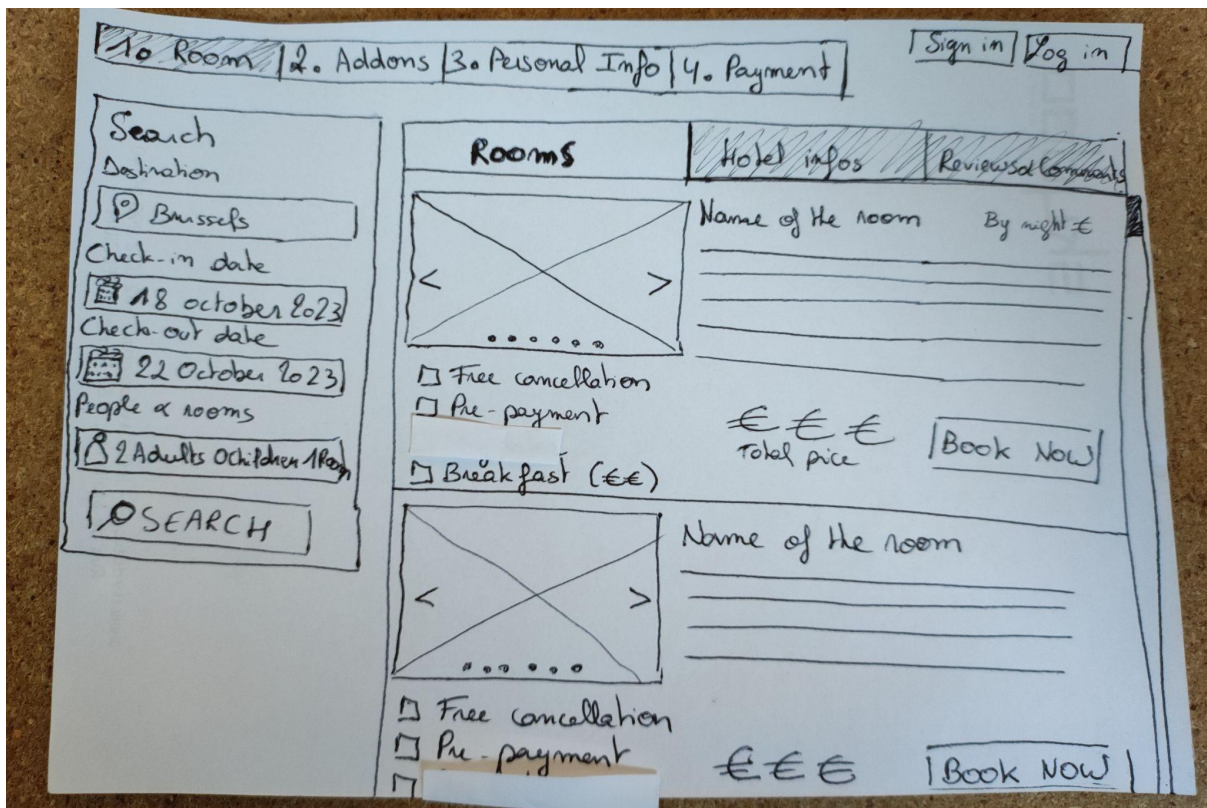 1. Room
2. Addons
3. Personal Info
4. Payment
Sign in
Log in
Search
Destination
Brussels
Check-in date
18 october 2023
Check-out date
22 October 2023
People & rooms
2 Adults 0 children 1 Room
SEARCH
Rooms
Hotel infos
Reviews & Comments
Name of the room
By night €
Free cancellation
Pre-payment
Breakfast (€€)
€ € €
Total price
Book Now
Name of the room
Free cancellation
Pre-payment
€ € €
Book Now